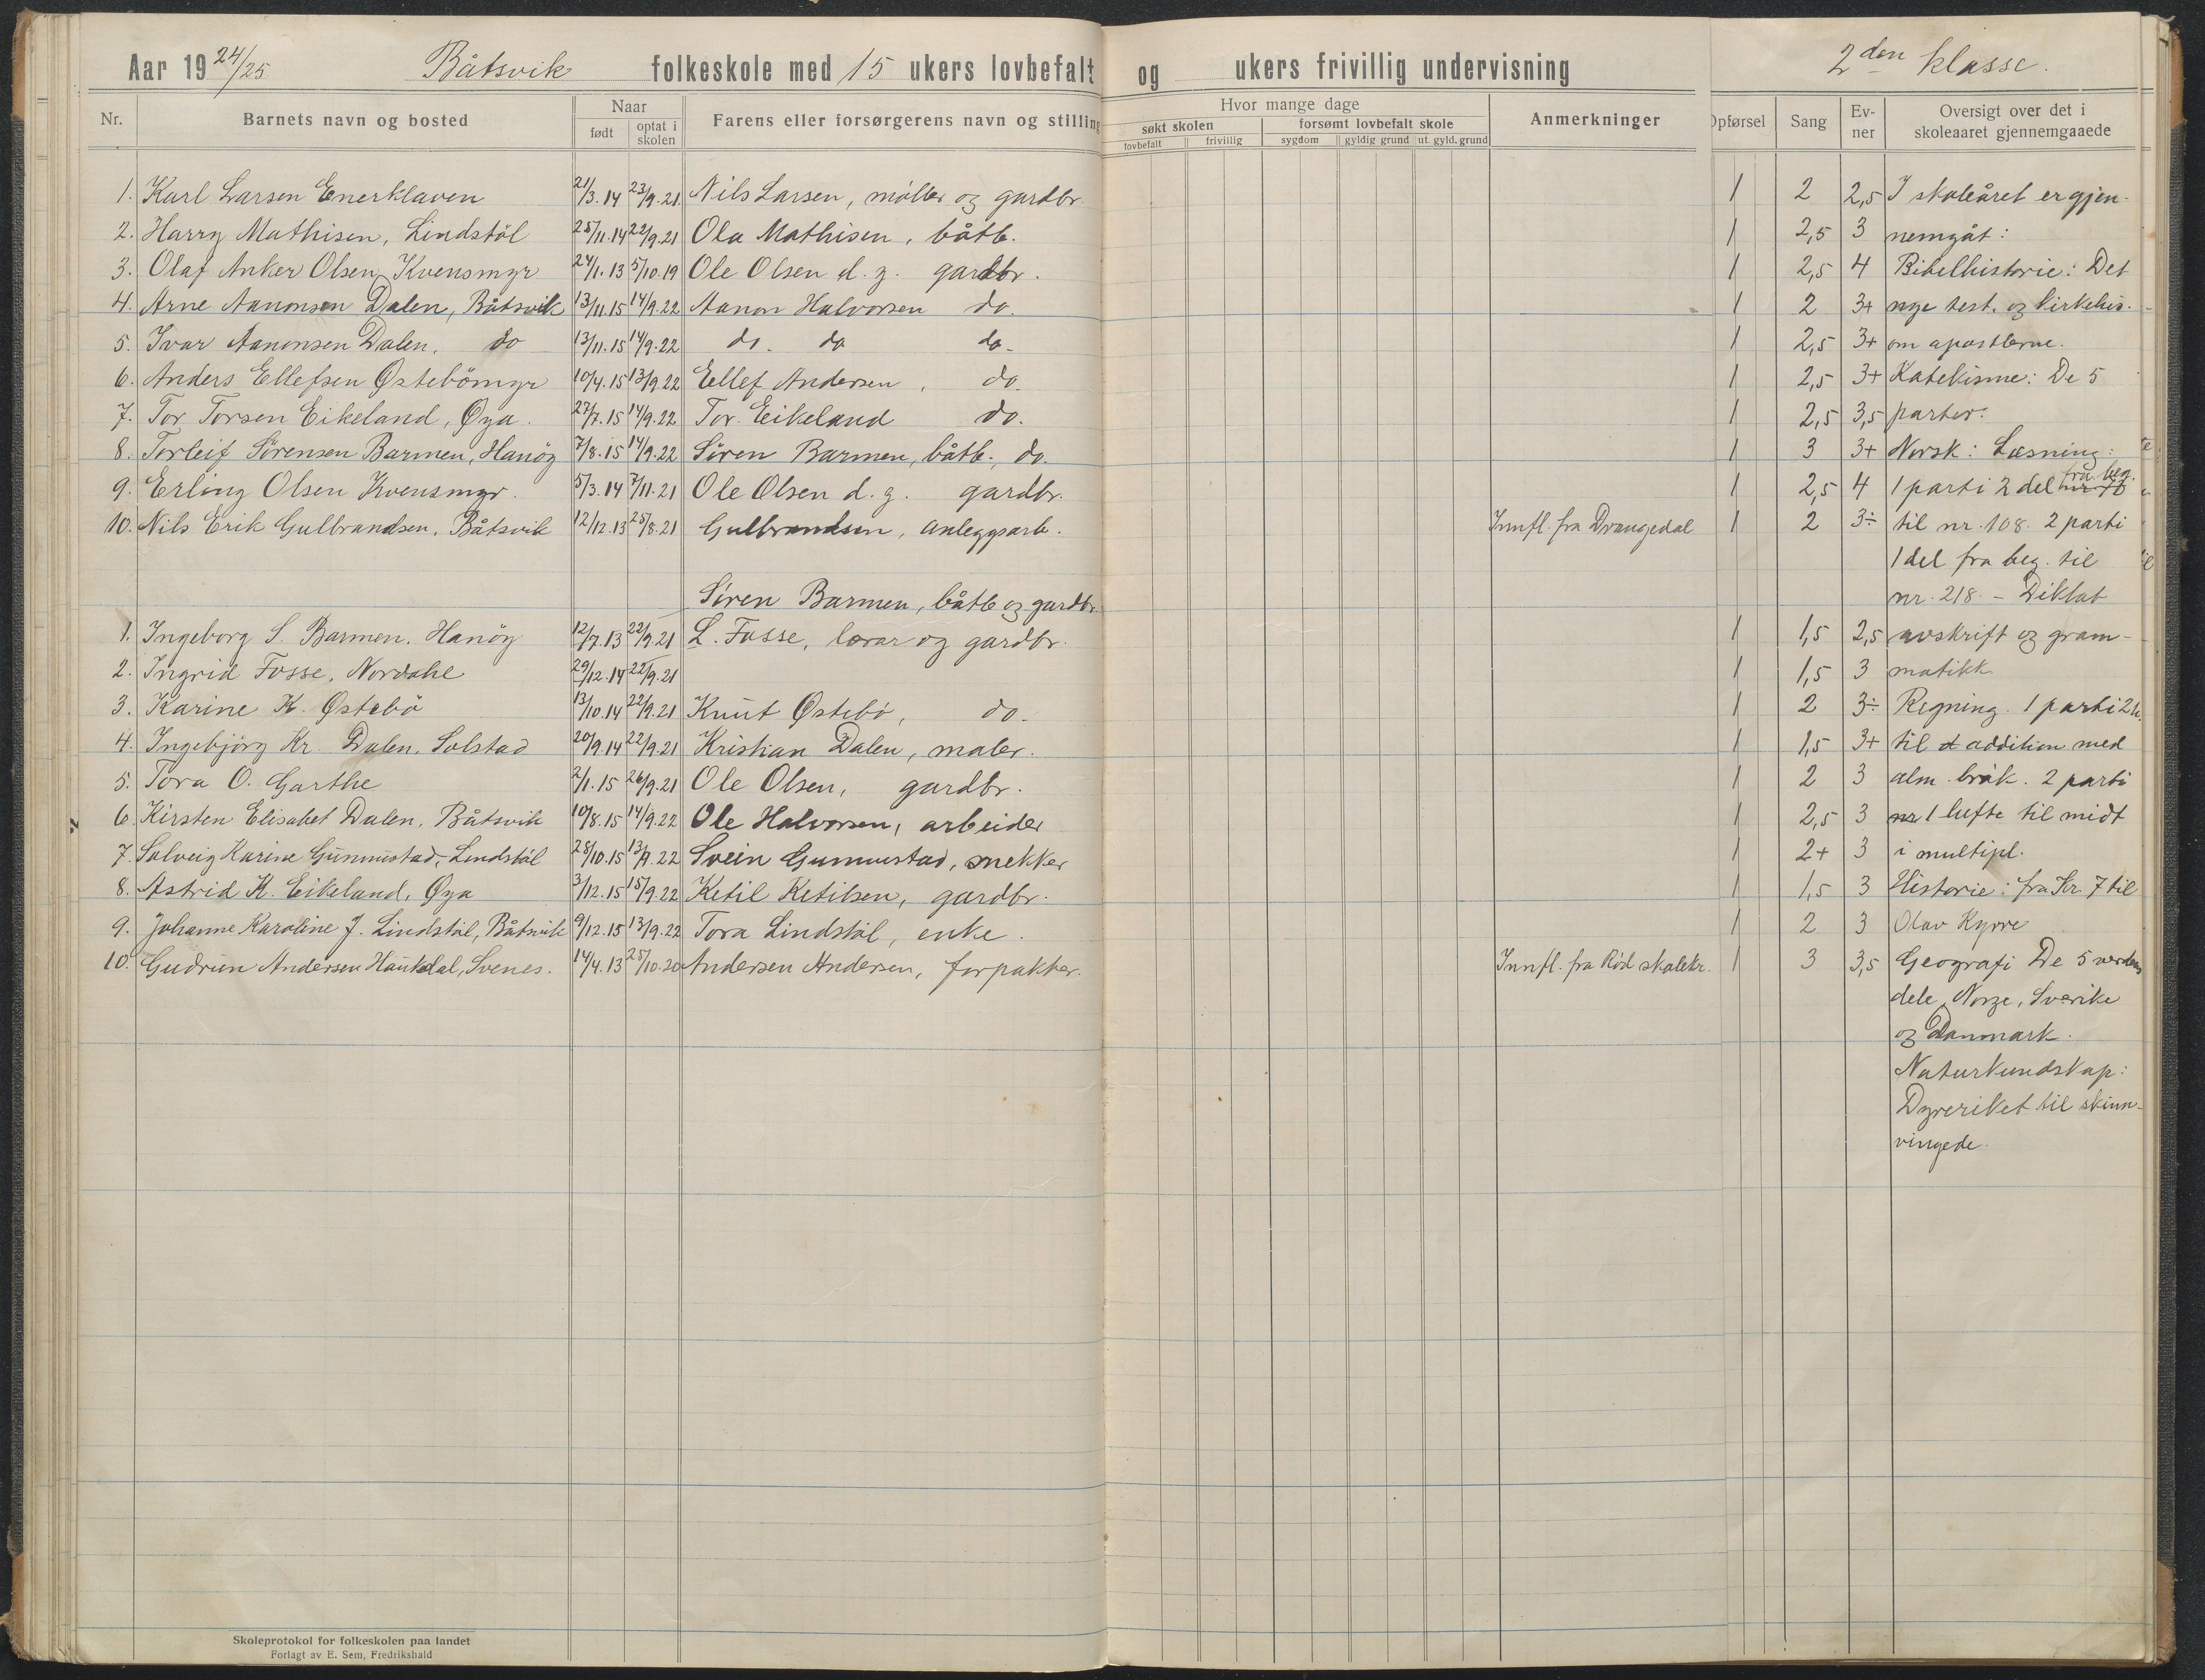 Aar 19 24/25 Båtsvik folkeskole med 15 ukers lovbefalt og ukers frivillig undervisning 2den klasse.
Nr. Barnets navn og bosted Naar født optat i skolen Farens eller forsørgerens navn og stilling Hvor mange dage søkt skolen lovbefalt frivillig forsømt lovbefalt skole sygdom gyldig grund ut. gyld. grund Anmerkninger Opførsel Sang Ev-ner Oversigt over det i skoleaaret gjennemgaaede
1. Karl Larsen Enerklaven 21/3.14 23/9.21 Nils Larsen, møller og gardbr. 1 2 2,5 I skoleåret er gjen-
2. Harry Mathisen, Lindstöl 25/11.14 22/9.21 Ola Mathisen, båtb. 1 2,5 3 nemgåt:
3. Olaf Anker Olsen Kvensmyr 24/1.13 5/10.19 Ole Olsen d.y. gardbr. 1 2,5 4 Bibelhistorie: Det
4. Arne Aanonsen Dalen, Båtsvik 13/11.15 14/9.22 Aanon Halvorsen do. 1 2 3+ nye test. og kirkehis.
5. Ivar Aanonsen Dalen, do 13/11.15 14/9.22 do. do do. 1 2,5 3+ om apostlerne.
6. Anders Ellefsen Østebömyr 10/4.15 13/9.22 Eellef Andersen, do. 1 2,5 3+ Katekisme: De 5
7. Tor Torsen Eikeland, Øya. 27/7.15 14/9.22 Tor Eikeland do. 1 2,5 3,5 parter.
8. Torleif Sörensen Barmen, Hanöy 7/8.15 14/9.22 Sören Barmen, båtb., do. 1 3 3+ Norsk: Læsning:
9. Erling Olsen Kvensmyr. 5/3.14 7/11.21 Ole Olsen d.y. gardbr. 1 2,5 4 1 parti 2 del fra beg.
10. Nils Erik Gulbrandsen, Båtsvik 12/12.13 25/8.21 Gulbrandsen, anleggsarb. Innfl. fra Drangedal 1 2 3÷ til nr. 108. 2 parti
1 del fra beg. til
Sören Barmen, båtb og gardbr. nr. 218. – Diktat
1. Ingeborg S. Barmen, Hanöy 12/7.13 22/9.21 L. Fosse, lærar og gardbr. 1 1,5 2,5 avskrift og gram-
2. Ingrid Fosse, Nordahe 29/12.14 22/9.21 1 1,5 3 matikk
3. Karine K. Østebö 13/10.14 22/9.21 Knut Østebö, do. 1 2 3÷ Regning. 1 parti 2 h.
4. Ingebjörg Kr. Dalen, Solstad 20/9.14 22/9.21 Kristian Dalen, maler. 1 1,5 3+ til addition med
5. Tora O. Garthe 2/1.15 26/9.21 Ole Olsen, gardbr. 1 2 3 alm. bråk. 2 parti
6. Kirsten Elisabet Dalen, Båtsvik 10/8.15 14/9.22 Ole Halvorsen, arbeider 1 2,5 3 nr 1 hefte til midt
7. Solveig Karine Gunnustad, Lindstöl 28/10.15 13/9.22 Svein Gunnustad, snekker 1 2+ 3 i multipl.
8. Astrid K. Eikeland, Øya 3/12.15 15/9.22 Ketil Ketilsen, gardbr. 1 1,5 3 Historie: fra Kr. 7 til
9. Johanne Karoline J. Lindstöl, Båtsvik 9/12.15 13/9.22 Tora Lindstöl, enke. 1 2 3 Olav Kyrre
10. Gudrun Andersen Haukdal, Svenes. 14/4.13 25/10.20 Andersen Andersen, forpakter. Innfl. fra Rød skolekr. 1 3 3,5 Geografi De 5 verdens
dele, Norge, Sverike
og Danmark.
Naturkundskap:
Dyreriket til skinn-
vingede.
Skoleprotokol for folkeskolen paa landet
Forlagt av E. Sem, Fredrikshald